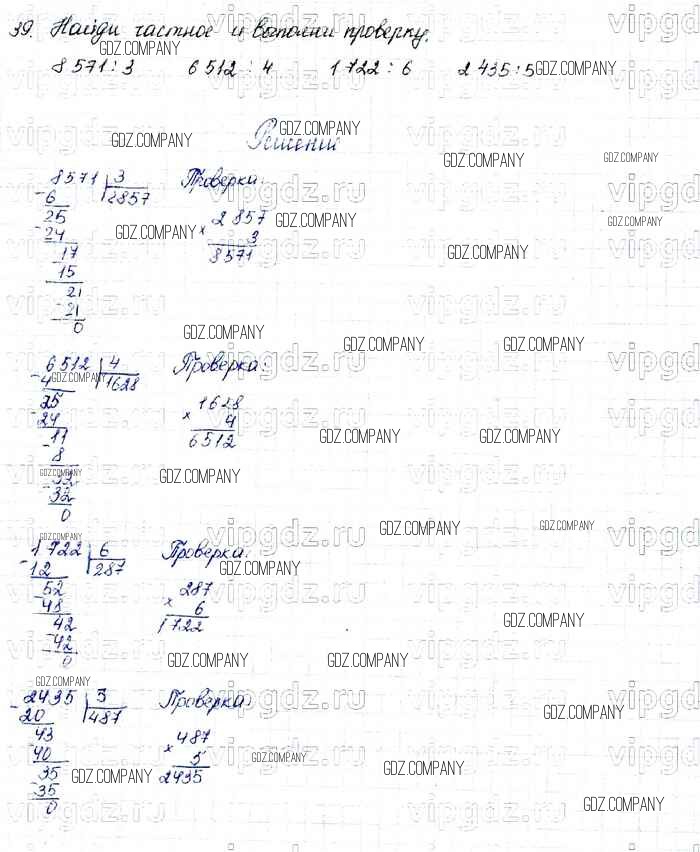 39. Найди частное и выполни проверку.
8 571 : 3   6 512 : 4   1 722 : 6   2 435 : 5
Решение
8571 | 3   Проверка:
-6   2857
25   2 857
-24   × 3
17   8571
15
21
-21
0
6512 | 4   Проверка:
-4   1628
25   1628
-24   × 4
11   6512
-8
32
-32
0
1722 | 6   Проверка:
-12   287
52   287
-48   × 6
42   1722
-42
0
2435 | 5   Проверка:
-20   487
43   487
-40   × 5
35   2435
-35
0
GDZ.COMPANY
vipgdz.ru